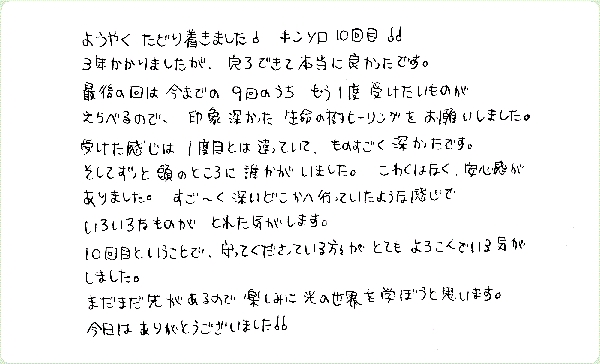 ようやく たどり着きました♪ キンソロ 10回目 ♪♪
3年かかりましたが、完了できて本当に良かったです。
最後の回は今までの 9回のうち もう1度 受けたいものが
えらべるので、印象深かった 生命の樹ヒーリングを お願いしました。
受けた感じは 1度目とは 違っていて、ものすごく 深かったです。
そしてずっと 頭のところに 誰かがいました。 こわくはなく、安心感が
ありました。 すご〜く 深いどこかへ 行っていたような感じで
いろいろなものが とれた気がします。
10回目ということで、守ってくださっている方々が とても よろこんでいる気が
しました。
まだまだ先があるので 楽しみに 光の世界を 学ぼうと思います。
今日は ありがとうございました♪♪